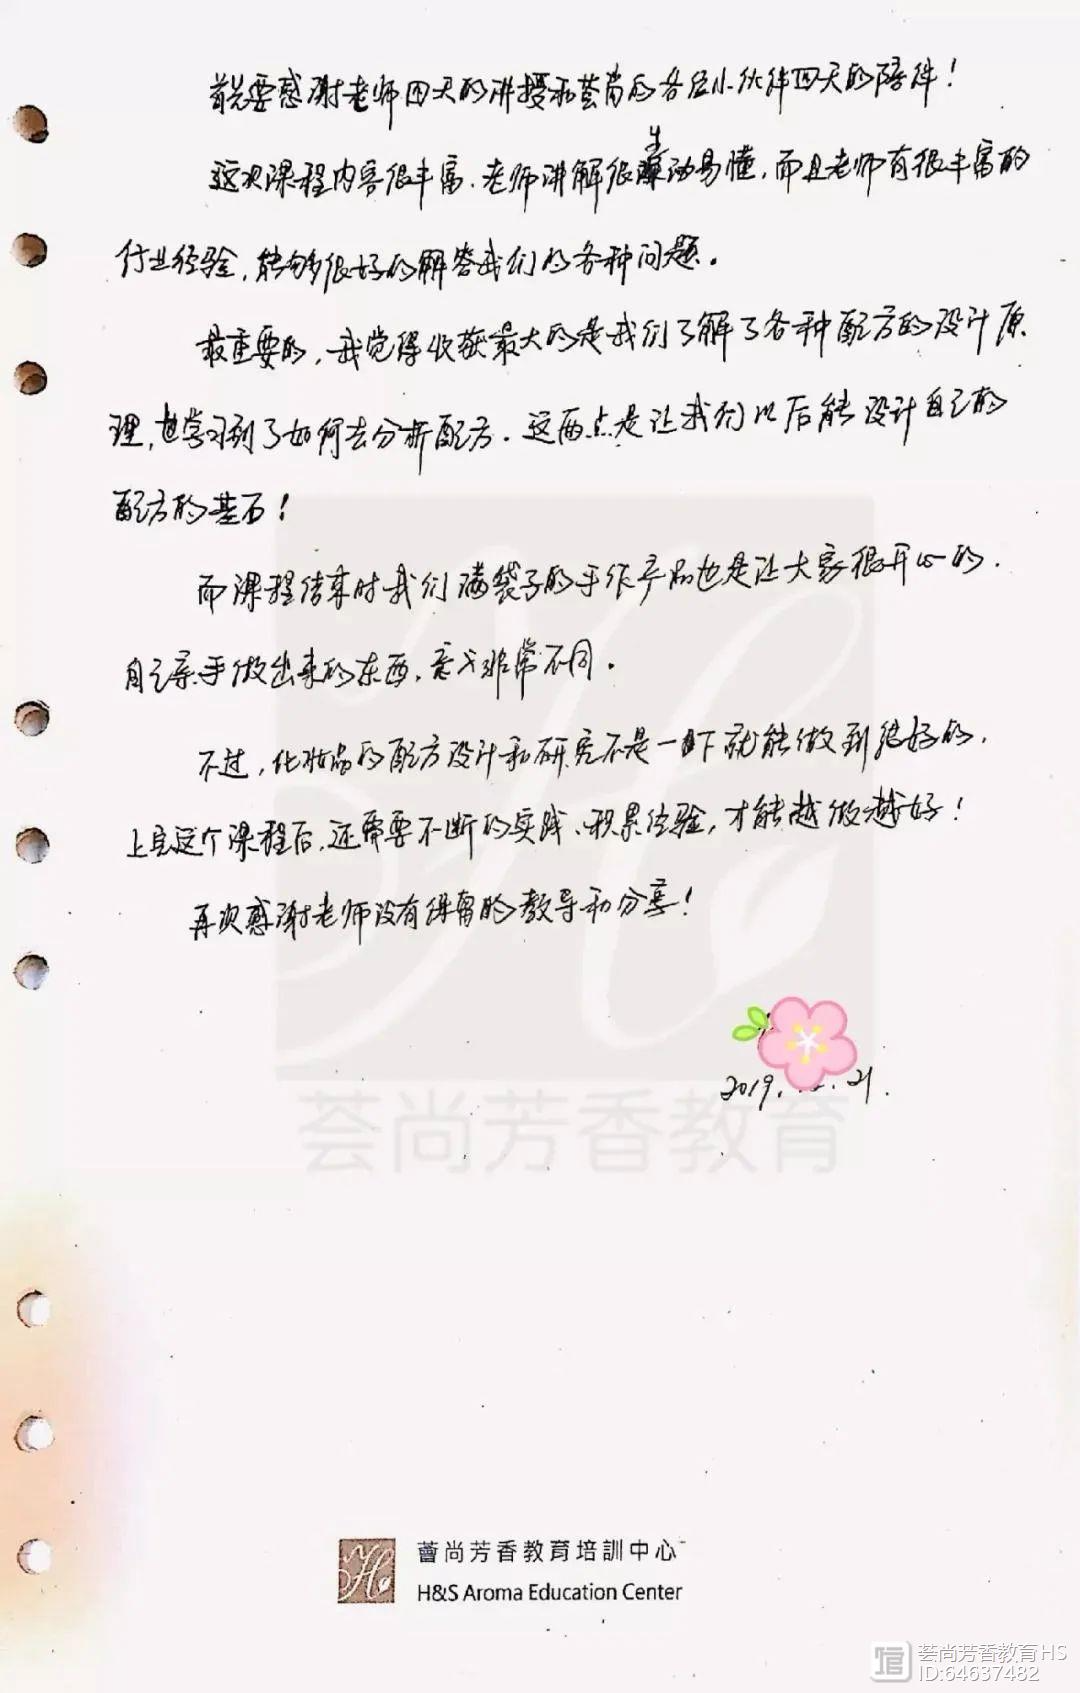 首先要感谢老师四天的讲授和荟尚的各位小伙伴四天的陪伴！
这次课程内容很丰富，老师讲解很生动易懂，而且老师有很丰富的
行业经验，能够很好的解答我们的各种问题。
最重要的，我觉得收获最大的是我们了解了各种配方的设计原
理，也学习到了如何去分析配方。这两点是让我们以后能设计自己的
配方的基石！
而课程结束时我们满袋子的手作产品也是让大家很开心的，
自己亲手做出来的东西，意义非常不同。
不过，化妆品的配方设计和研究不是一下就能做到很好的，
上完这个课程后，还需要不断的实践、积累经验，才能越做越好！
再次感谢老师没有保留的教导和分享！
2019. .21.
荟尚芳香教育
薈尚芳香教育培訓中心
H&S Aroma Education Center
荟尚芳香教育HS
ID:64637482